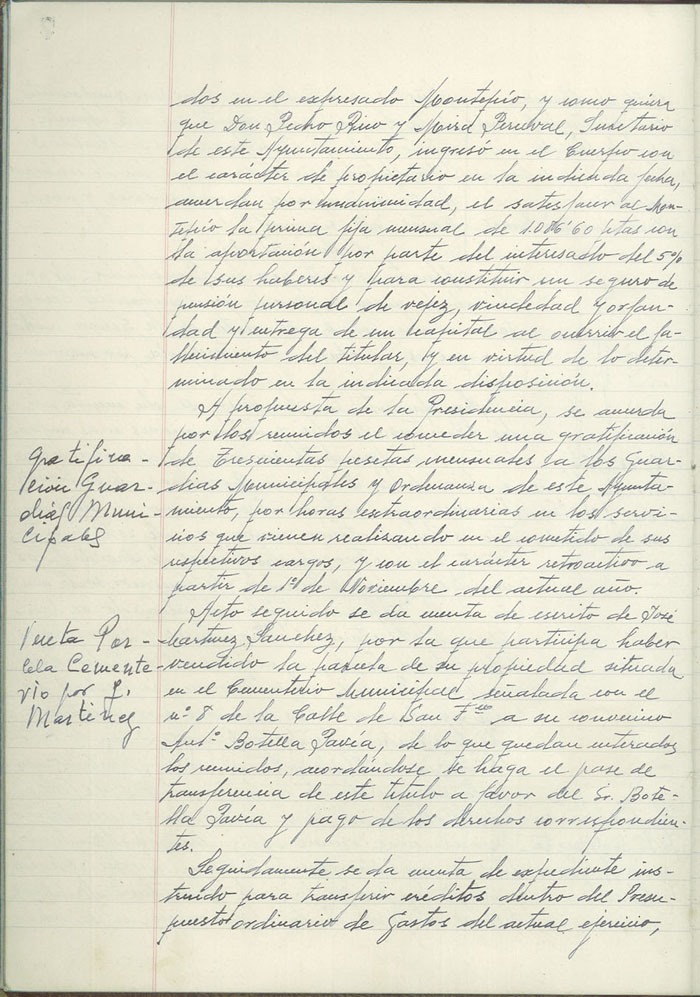 dos en el expresado Montepío, y como quiera
que Don Pedro Rico y Mira Perceval, Secretario
de este Ayuntamiento, ingresó en el Cuerpo con
el carácter de propietario en la indicada fecha,
acuerdan por unanimidad, el satisfacer al Mon-
tepío la prima fija mensual de ptas con
la aportación por parte del interesado del 5%
de sus haberes y para constituir un seguro de
pensión personal de vejez, viudedad y orfan-
dad y entrega de un capital al ocurrir el fa-
llecimiento del titular, y en virtud de lo deter-
minado en la indicada disposición.
A propuesta de la Presidencia, se acuerda
por los reunidos el conceder una gratificación
de Trescientas pesetas mensuales a los Guar-
dias Municipales y Ordenanza de este Ayunta-
miento, por horas extraordinarias en los servi-
cios que vienen realizando en el cometido de sus
respectivos cargos, y con el carácter retroactivo a
partir de 1º de Noviembre del actual año.
Acto seguido se da cuenta de escrito de José
Martinez Sanchez, por la que participa haber
vendido la parcela de su propiedad situada
en el Cementerio Municipal señalada con el
nº 8 de la Calle de San Fco a su convecino
Antº Botella Pavía, de lo que quedan enterados
los reunidos, acordándose se haga el pase de
transferencia de este título a favor del Sr. Bote-
lla Pavía y pago de los derechos correspondien-
tes.
Seguidamente se da cuenta de expediente ins-
truido para transferir créditos dentro del Presu-
puesto ordinario de Gastos del actual ejercicio,
gratifica-
ción Guar-
dias Muni-
cipales
Venta Par-
cela Cemente-
rio por J.
Martinez